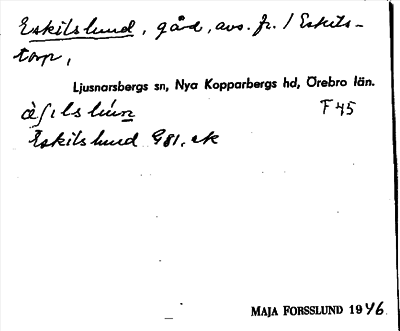 Eskilslund, gård, avs. fr. 1 Eskils-
torp,
Ljusnarsbergs sn, Nya Kopparbergs hd, Örebro län.
F 45
Eskilslund G81, ek
MAJA FORSSLUND 1946.